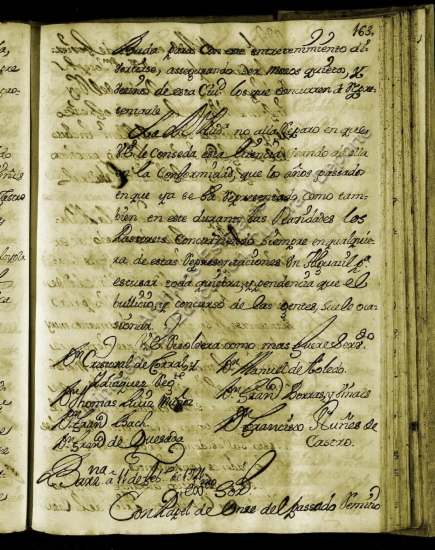 163.
Ayuda para con este entretenimiento di
vertirse, assegurando ser mozos quietos, y
vecinos de esta Ciud los que concurren à Repre
sentarla
La R. Aud.ª no alla Reparo en que
V.E. le conseda esta licencia usando de ella
en la Conformidad, que los años passado
en que ya se ha Representado, como tam
bien en este durante las Navidades los
Pastores Concurriendo siempre en qualquie
ra de estas Representaciones un Alguazil p.ª
escusar toda quiebra, y pendencia que el
bullicio, y concurso de las gentes, suele oca
sionar.
V.E. Resolverá como mas fuere Serv.do
D.n Cristoval de Corral, y
Idiaquez Reg.te
D.n Manuel de Toledo.
D.n Thomas
D.n Fran.co Borras, y Viñals
D.n Fran.co Bach.
D.n Francisco Nuñes de
Castro.
D.n Fran.co de Quesada
Barz.na a 11 de feb.o de
Ex.mo Sor.
Con Papel de Onse del passado Remitió